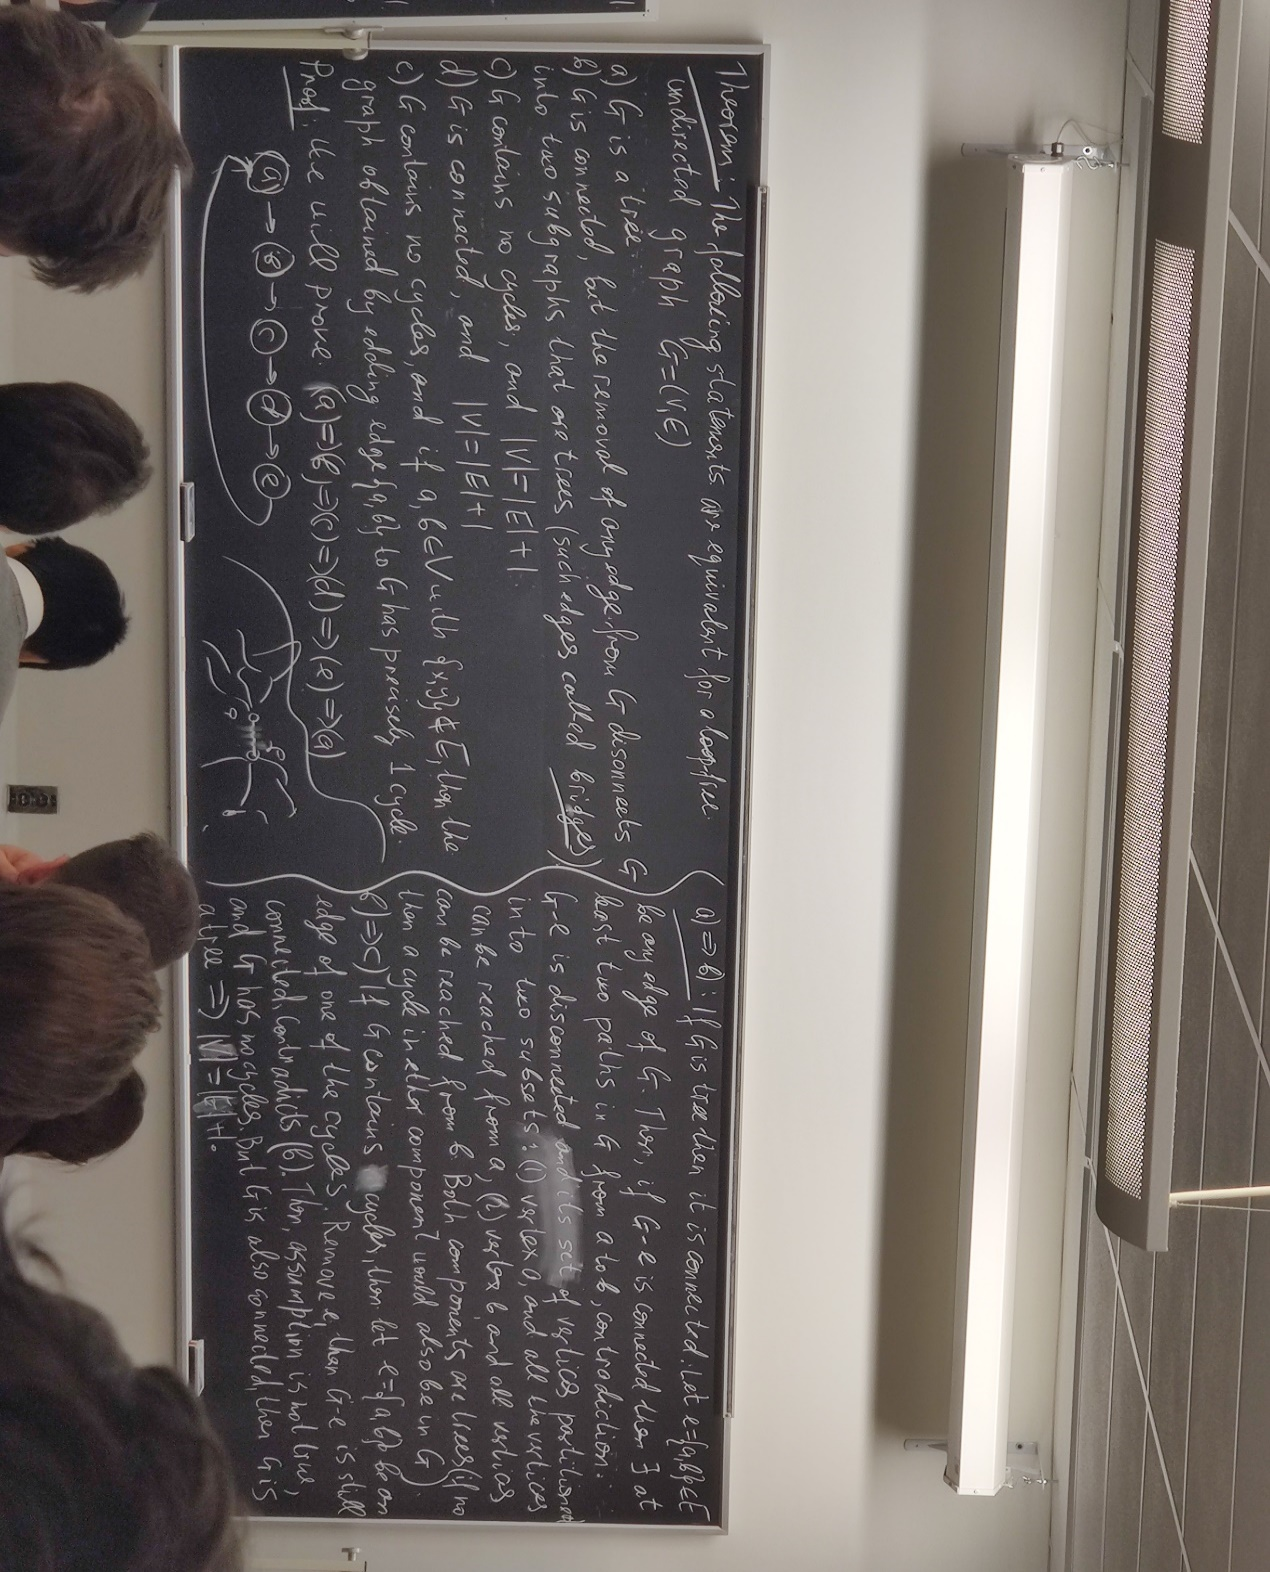 Theorem: The following statements are equivalent for a loop-free
undirected graph G=(V,E)
a) G is a tree
b) G is connected, but the removal of any edge from G disonnects G
into two subgraphs that are trees (such edges called bridges)
c) G contains no cycles, and |V|=|E|+1.
d) G is connected, and |V|=|E|+1
e) G contains no cycles, and if a,b∈V with {x,y}∉E, then the
graph obtained by adding edge {a,b} to G has precisely 1 cycle.
Proof: We will prove (a)=>(b)=>(c)=>(d)=>(e)=>(a)
(a)→(b)→(c)→(d)→(e)
a)=>b): If G is tree then it is connected. Let e={a,b}∈E
be any edge of G. Then, if G-e is connected then ∃ at
least two paths in G from a to b, contradiction.
G-e is disconnected and its set of vertices partitioned
into two subsets: (1) vertex a, and all the vertices
can be reached from a, (2) vertex b, and all vertices
can be reached from b. Both components are trees (if no
then a cycle in ether component would also be in G)
b)=>c) If G contains cycles, then let e={a,b} be an
edge of one of the cycles. Remove e, then G-e is still
connected contradicts (b). Then, assumption is not true,
and G has no cycles. But G is also connected, then G is
a tree => |V|=|E|+1.